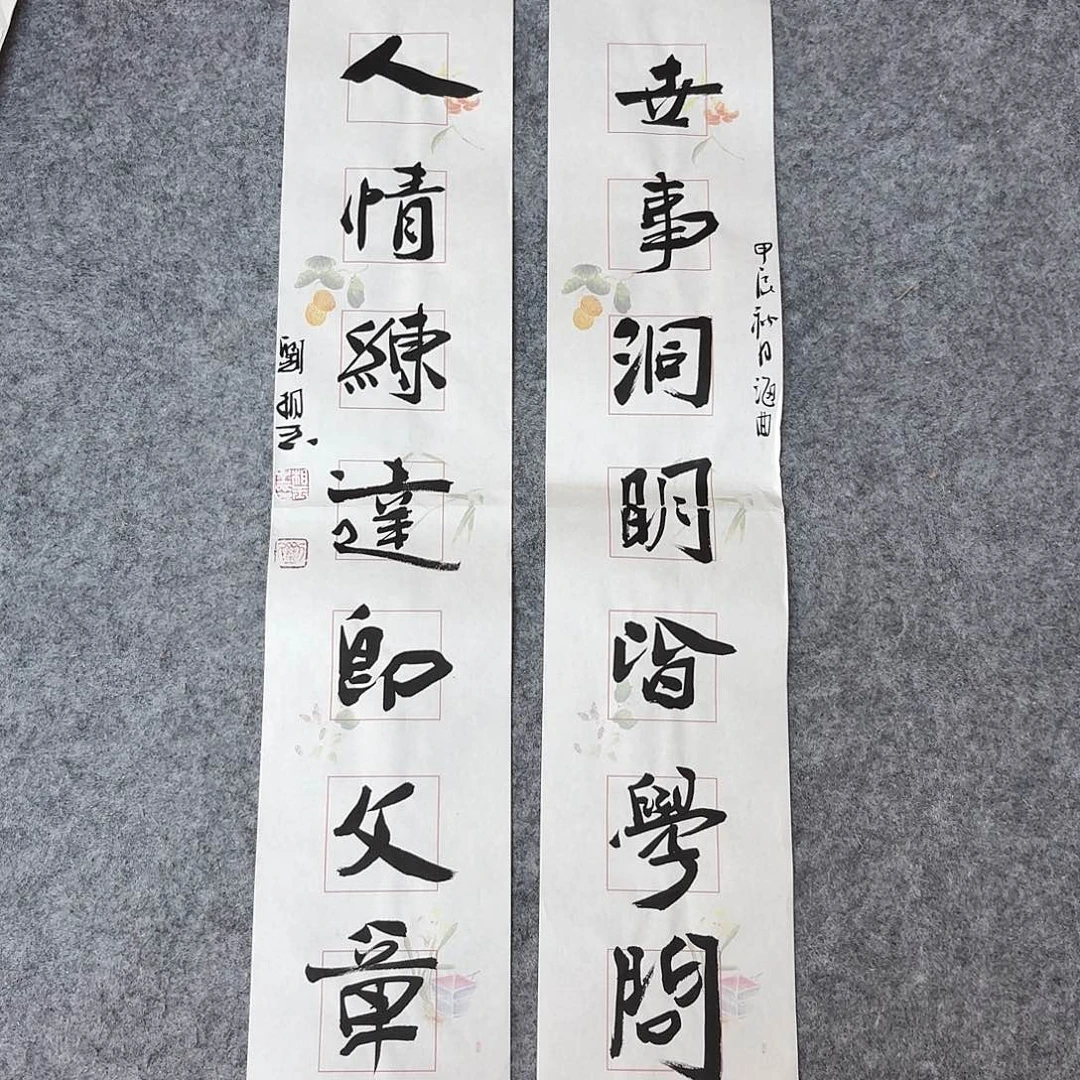 甲辰秋日海曲
世事洞明皆學問
人情練達即文章
劉